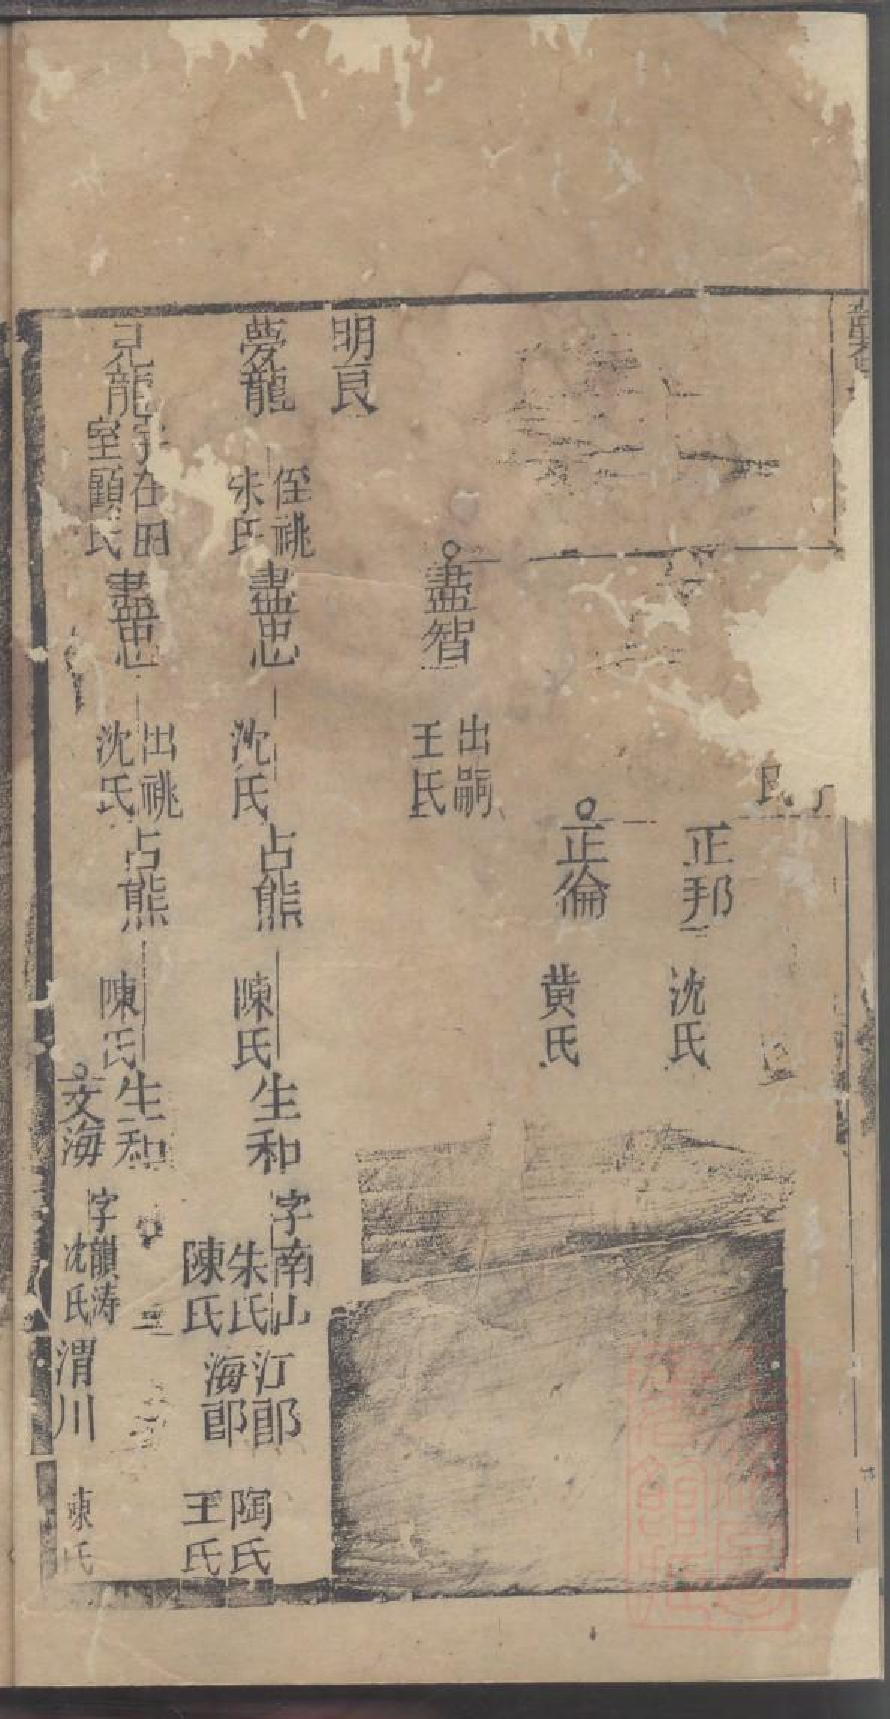 正邦
沈氏
正倫
黃氏
盡智
出嗣
王氏
明良
夢龍
侄祧
朱氏
盡忠
沈氏
占熊
陳氏
生和
字南山
朱氏
陳氏
汀郎
海郎
陶氏
王氏
見龍
字在田
室顧氏
盡忠
出祧
沈氏
占熊
陳氏
生和
文海
字韻涛
沈氏
渭川
陳氏